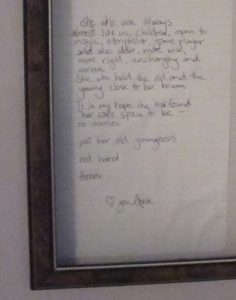 She who was always
almost like us, children, open to
magic, storyteller, game player
and also older, more wise,
more rigid, unchanging and
She who held the old and the
young close to her bosom
It is my hope she has found
her safe space to be –
no worries
just her old youngness
red-haired
forever
♡ you